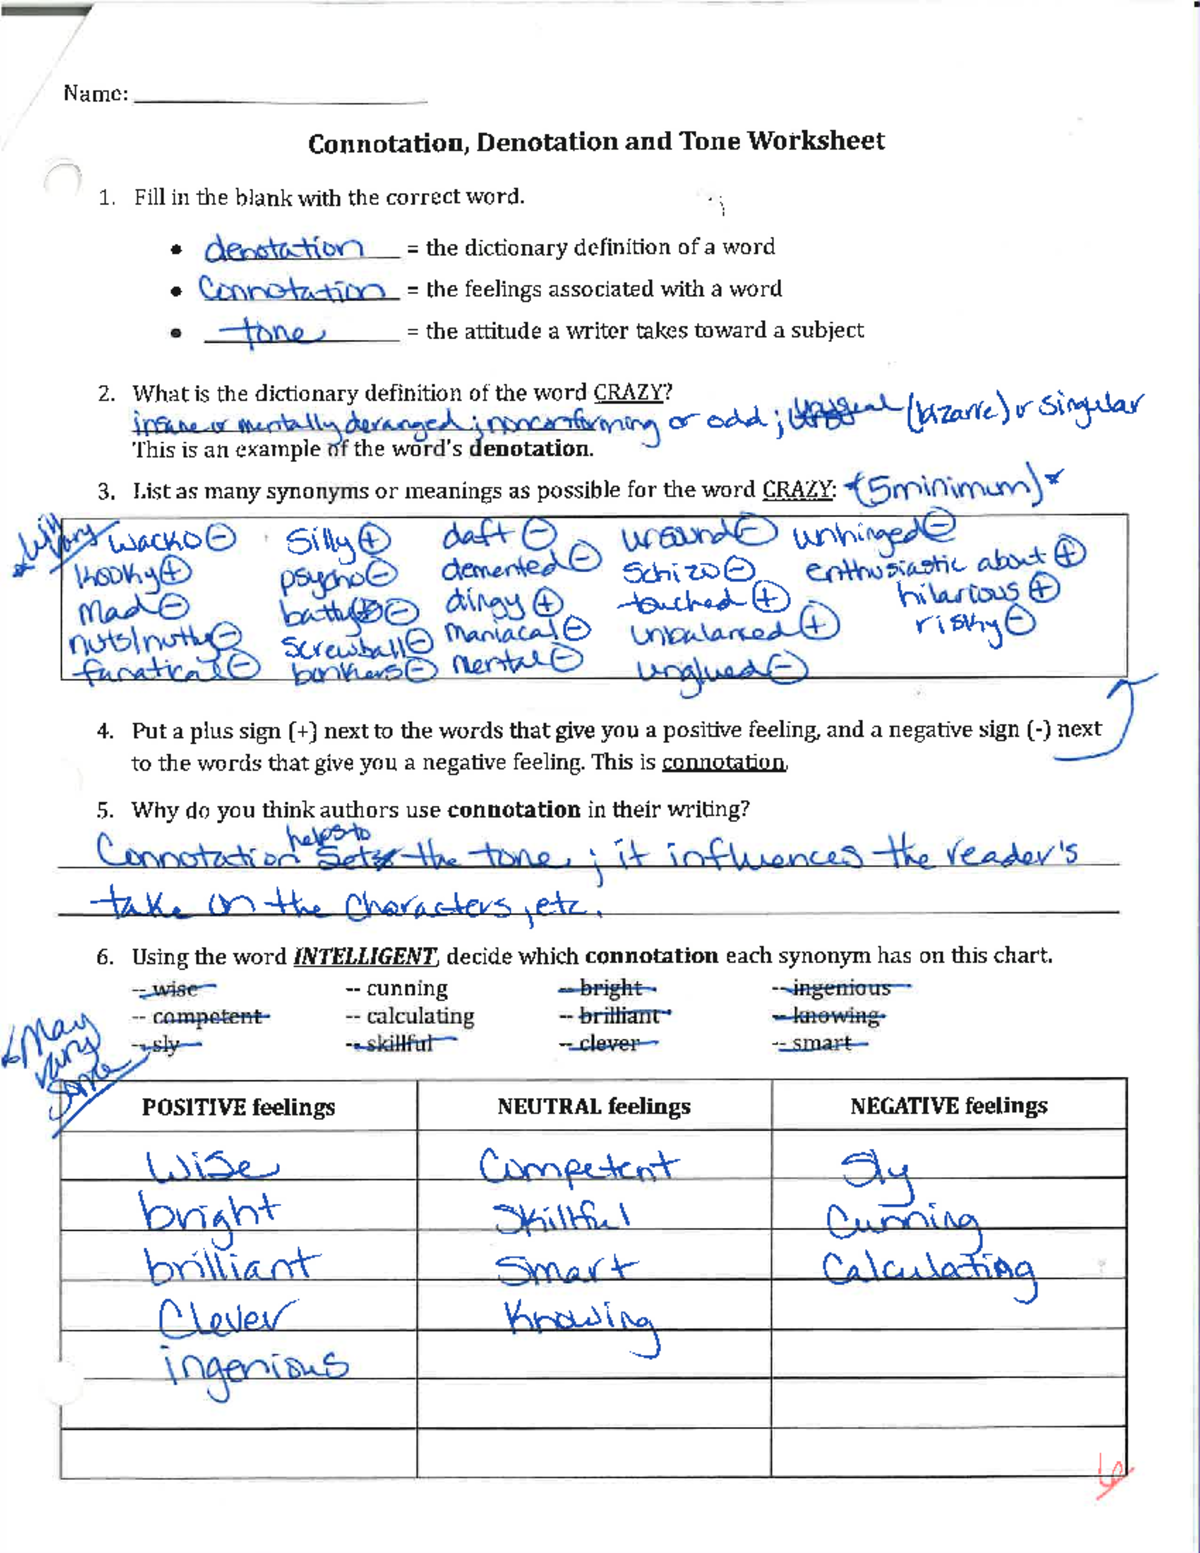 Name:
Connotation, Denotation and Tone Worksheet
1. Fill in the blank with the correct word.
• denotation = the dictionary definition of a word
• Connotation = the feelings associated with a word
• tone = the attitude a writer takes toward a subject
2. What is the dictionary definition of the word CRAZY?
insane or mentally deranged; nonconforming or odd; unusual (bizarre) or singular
This is an example of the word's denotation.
3. List as many synonyms or meanings as possible for the word CRAZY: *(5 minimum)*
* Will vary
wacko - Silly + daft - unsound - unhinged -
Kooky + psycho - demented - Schizo - enthusiastic about +
Mad - batty - dingy + touched + hilarious +
nuts/nutty - screwball - Maniacal - unbalanced + risky -
fanatical - bonkers - mental - unglued -
4. Put a plus sign (+) next to the words that give you a positive feeling, and a negative sign (-) next
to the words that give you a negative feeling. This is connotation.
5. Why do you think authors use connotation in their writing?
Connotation helps to set the tone; it influences the reader's
take on the characters, etc.
6. Using the word INTELLIGENT, decide which connotation each synonym has on this chart.
-- wise -- cunning -- bright -- ingenious
-- competent -- calculating -- brilliant -- knowing
-- sly -- skillful -- clever -- smart
May vary some
POSITIVE feelings NEUTRAL feelings NEGATIVE feelings
Wise Competent Sly
bright Skillful Cunning
brilliant Smart Calculating
Clever Knowing
ingenious